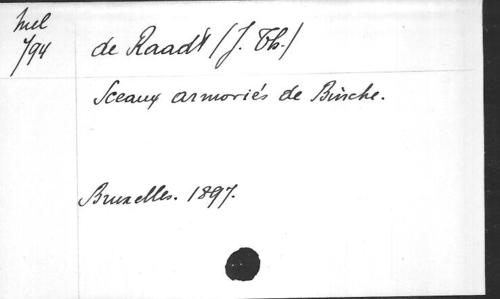 Mel
/94
de Raadt (J. Th.)
Sceaux armoriés de Binche.
Bruxelles. 1897.